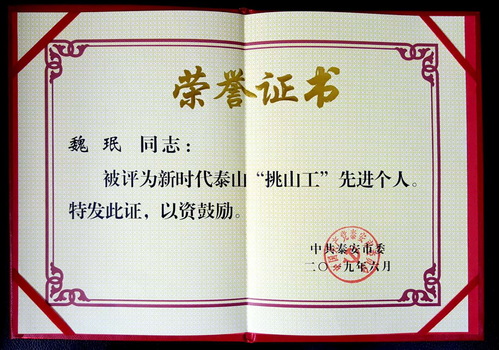 荣誉证书
魏珉 同志：
被评为新时代泰山“挑山工”先进个人。
特发此证，以资鼓励。
中共泰安市委
二〇一九年六月